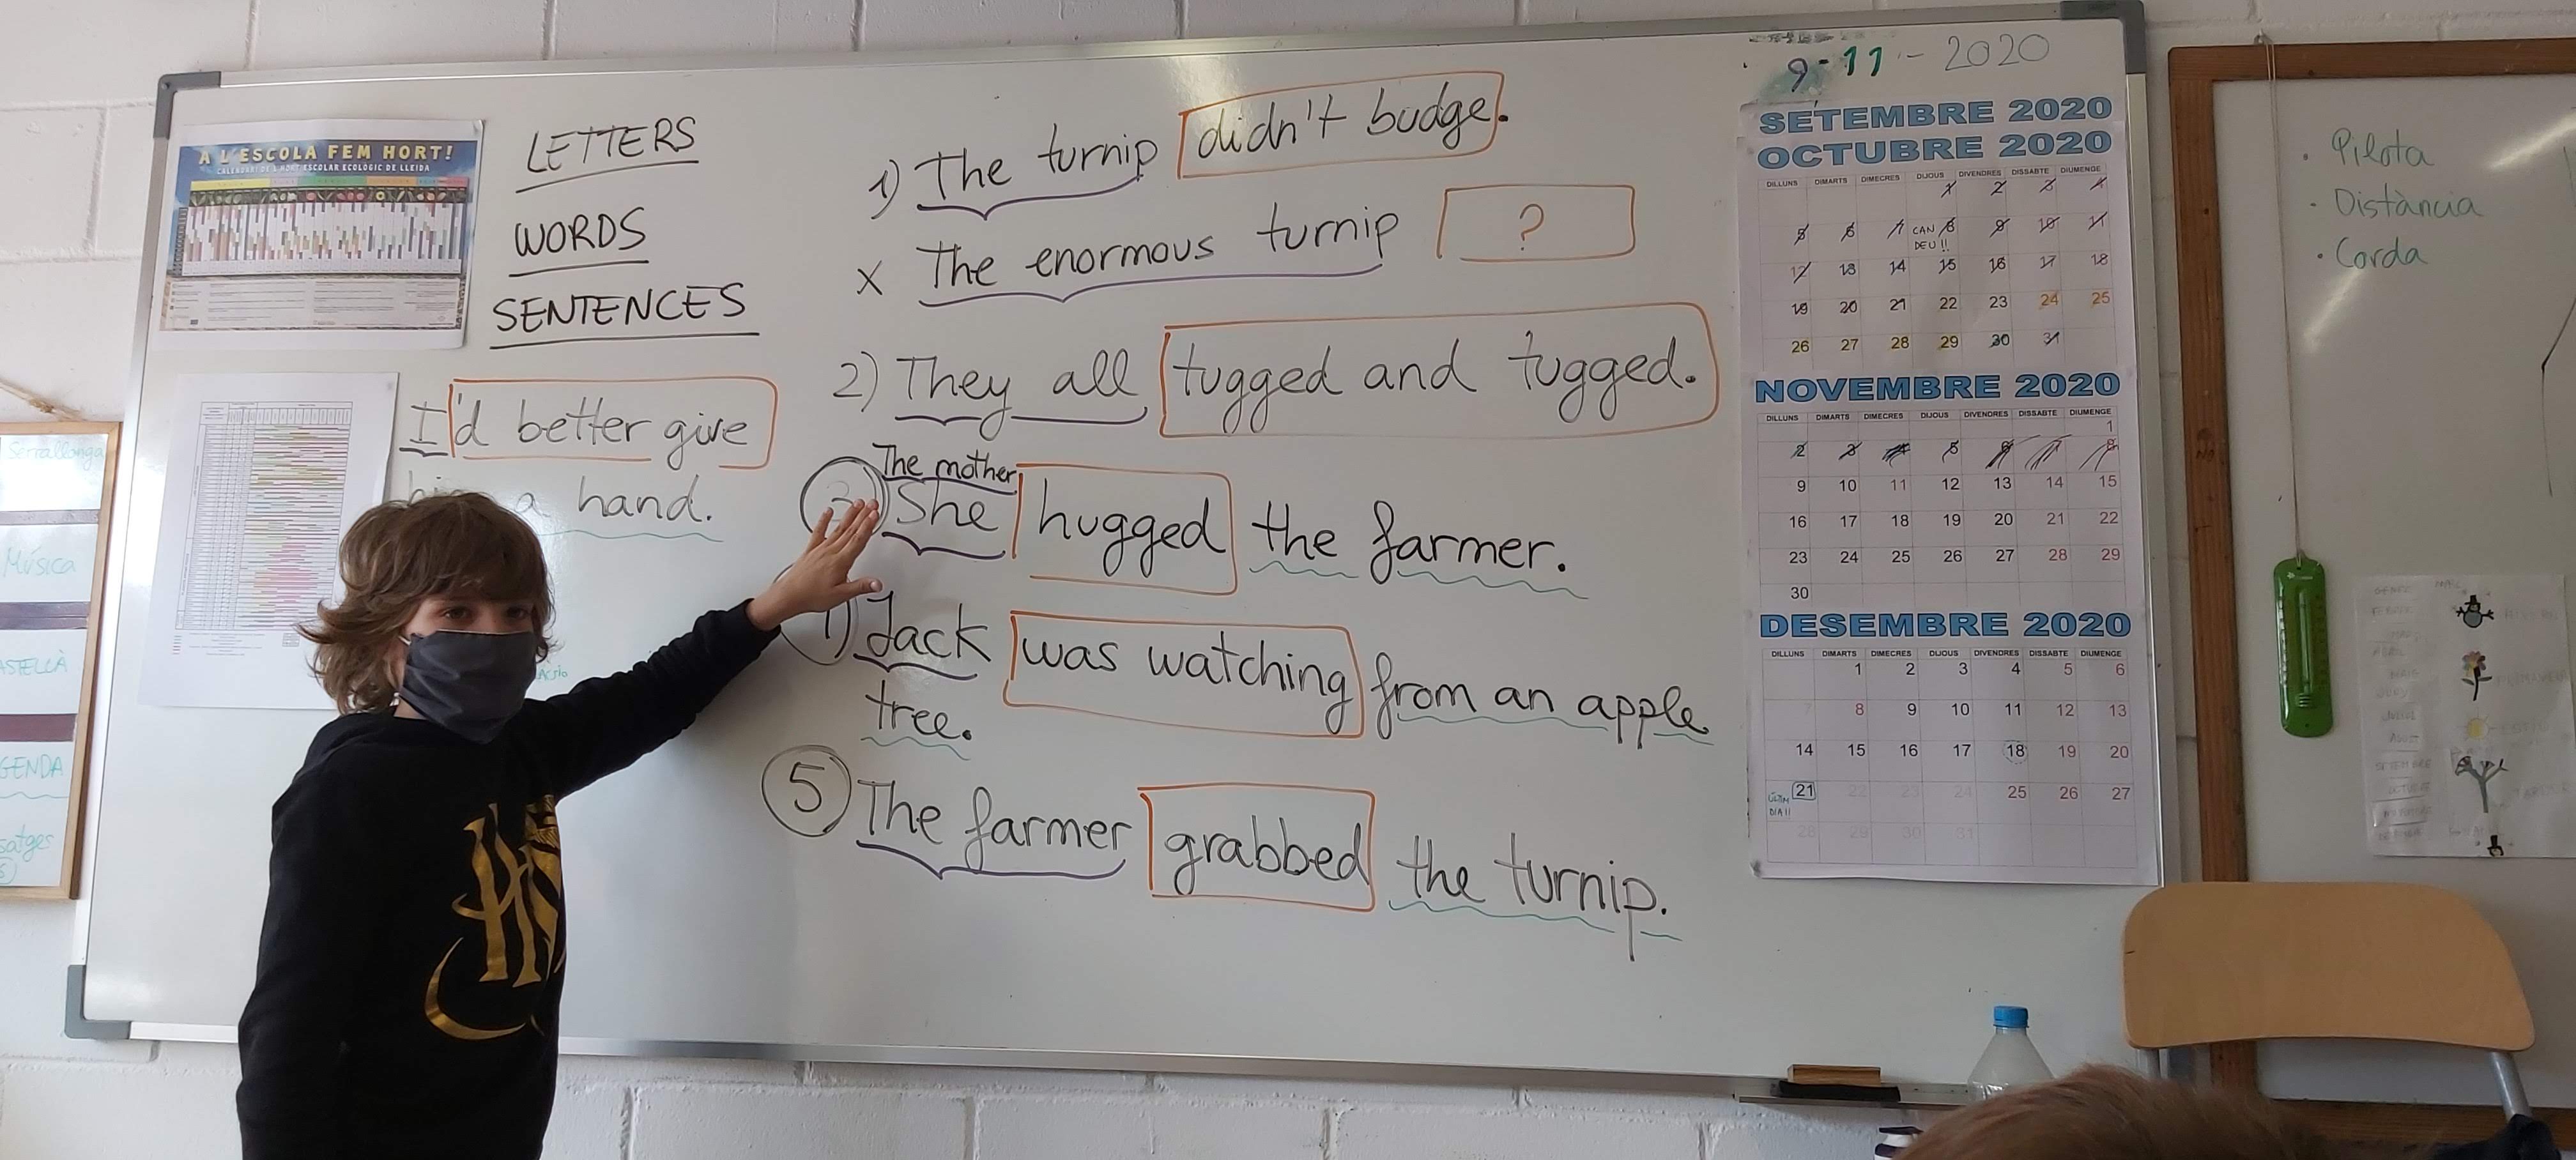 A L'ESCOLA FEM HORT!
CALENDARI DE L'HORT ESCOLAR ECOLÒGIC DE LLEIDA
LETTERS
WORDS
SENTENCES
I'd better give
a hand.
1) The turnip didn't budge.
x The enormous turnip ?
2) They all tugged and tugged.
The mother
She hugged the farmer.
Jack was watching from an apple
tree.
5 The farmer grabbed the turnip.
9-11-2020
SETEMBRE 2020
OCTUBRE 2020
DILLUNS DIMARTS DIMECRES DIJOUS DIVENDRES DISSABTE DIUMENGE
1 2 3 4
5 6 7 CAN 8 9 10 11
DEU!!
12 13 14 15 16 17 18
19 20 21 22 23 24 25
26 27 28 29 30 31
NOVEMBRE 2020
DILLUNS DIMARTS DIMECRES DIJOUS DIVENDRES DISSABTE DIUMENGE
1
2 3 4 5 6 7 8
9 10 11 12 13 14 15
16 17 18 19 20 21 22
23 24 25 26 27 28 29
30
DESEMBRE 2020
DILLUNS DIMARTS DIMECRES DIJOUS DIVENDRES DISSABTE DIUMENGE
1 2 3 4 5 6
7 8 9 10 11 12 13
14 15 16 17 18 19 20
ÚLTIM DIA!! 21 22 23 24 25 26 27
28 29 30 31
· Pilota
· Distància
· Corda
Serrallonga
Música
ASTELLÀ
GENDA
satges